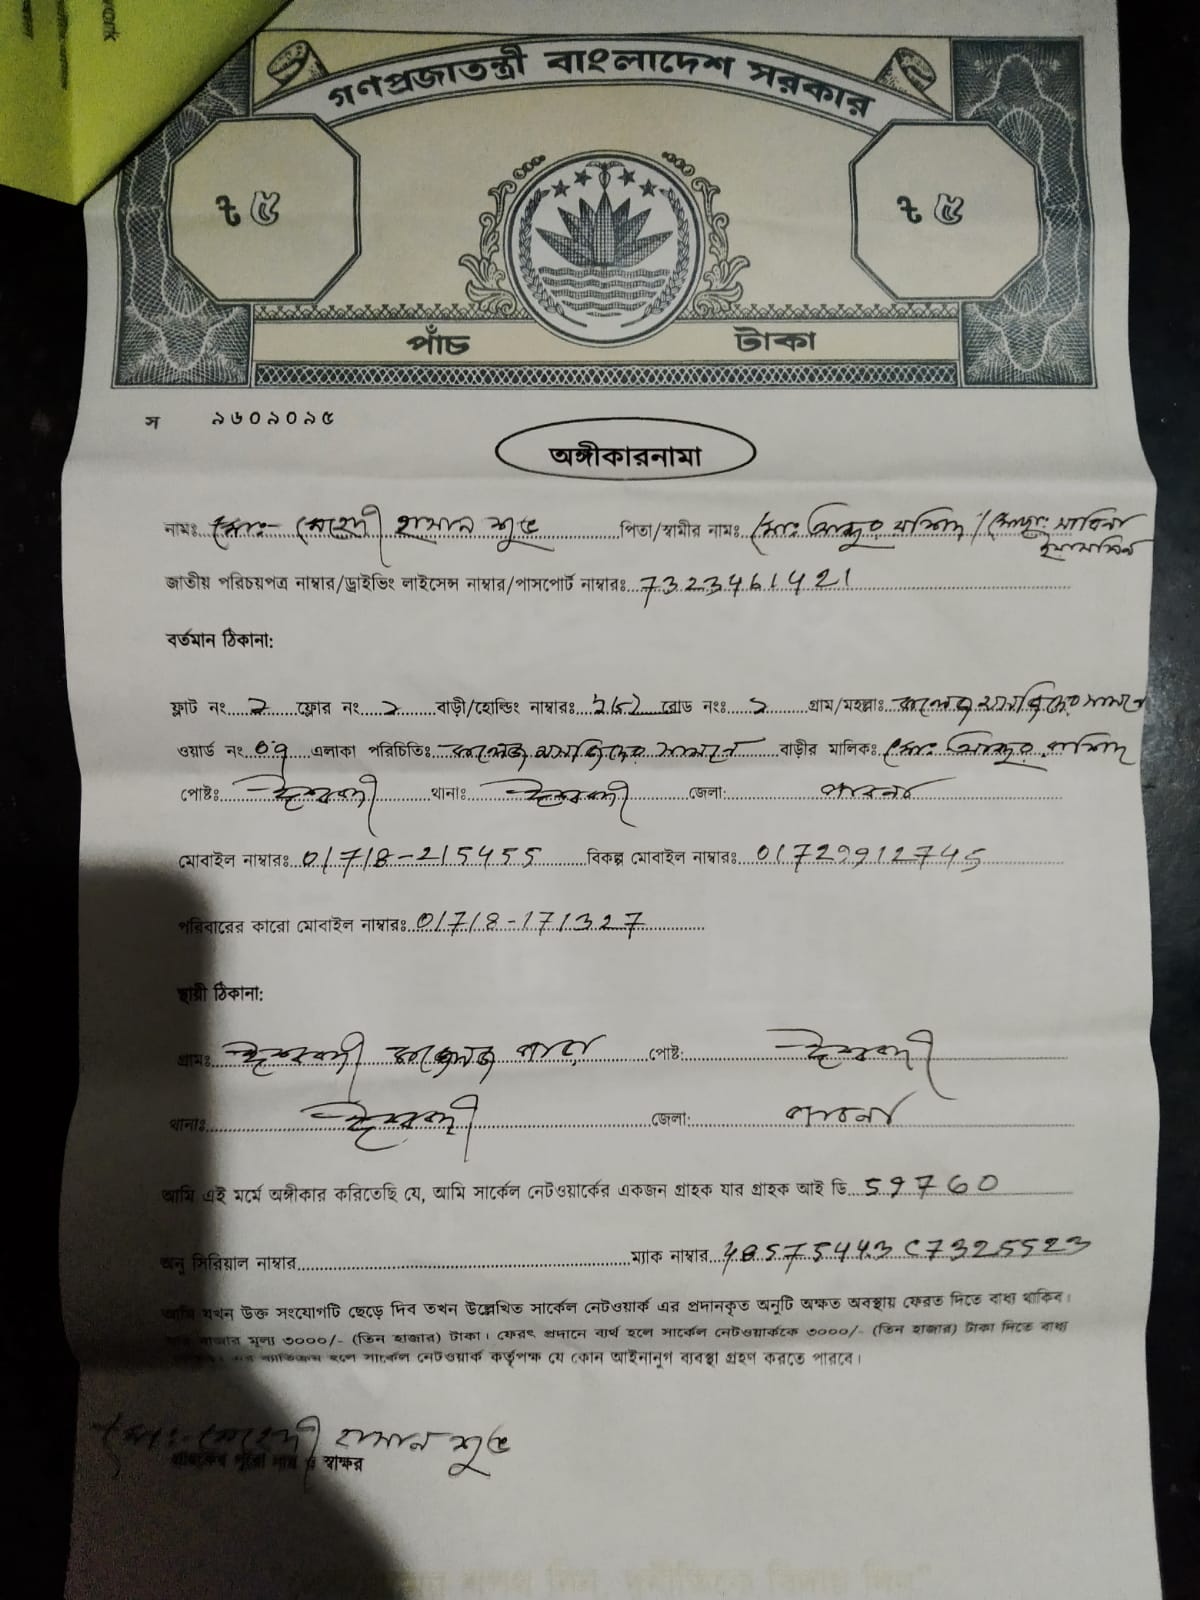 গণপ্রজাতন্ত্রী বাংলাদেশ সরকার
৳ ৫ ৳ ৫
পাঁচ টাকা
স ৯৬০৯০৯৫
অঙ্গীকারনামা
নামঃ মোঃ- মেহেদী হাসান শুভ পিতা/স্বামীর নামঃ মোঃ আব্দুর রশিদ / মোছাঃ সাবিনা ইয়াসমিন
জাতীয় পরিচয়পত্র নাম্বার/ড্রাইভিং লাইসেন্স নাম্বার/পাসপোর্ট নাম্বারঃ 7323461421
বর্তমান ঠিকানা:
ফ্লাট নং ২ ফ্লোর নং ১ বাড়ী/হোল্ডিং নাম্বারঃ রোড নংঃ ১ গ্রাম/মহল্লাঃ কলেজ মসজিদের সামনে
ওয়ার্ড নং ০৭ এলাকা পরিচিতিঃ কলেজ মসজিদের সামনে বাড়ীর মালিকঃ মোঃ আব্দুর রশিদ
পোষ্টঃ ঈশ্বরদী থানাঃ ঈশ্বরদী জেলা: পাবনা
মোবাইল নাম্বারঃ 01718-215455 বিকল্প মোবাইল নাম্বারঃ 01729912745
পরিবারের কারো মোবাইল নাম্বারঃ 01718-171327
স্থায়ী ঠিকানা:
গ্রামঃ ঈশ্বরদী কলেজ পাড়া পোষ্ট: ঈশ্বরদী
থানাঃ ঈশ্বরদী জেলা: পাবনা
আমি এই মর্মে অঙ্গীকার করিতেছি যে, আমি সার্কেল নেটওয়ার্কের একজন গ্রাহক যার গ্রাহক আই ডি 59760
অনু সিরিয়াল নাম্বার ম্যাক নাম্বার 48575443C7325523
আমি যখন উক্ত সংযোগটি ছেড়ে দিব তখন উল্লেখিত সার্কেল নেটওয়ার্ক এর প্রদানকৃত অনুটি অক্ষত অবস্থায় ফেরত দিতে বাধ্য থাকিব।
যার বাজার মূল্য ৩০০০/- (তিন হাজার) টাকা। ফেরৎ প্রদানে ব্যর্থ হলে সার্কেল নেটওয়ার্ককে ৩০০০/- (তিন হাজার) টাকা দিতে বাধ্য
এর ব্যতিক্রম হলে সার্কেল নেটওয়ার্ক কর্তৃপক্ষ যে কোন আইনানুগ ব্যবস্থা গ্রহণ করতে পারবে।
মোঃ- মেহেদী হাসান শুভ
গ্রাহকের পুরো নাম ও স্বাক্ষর